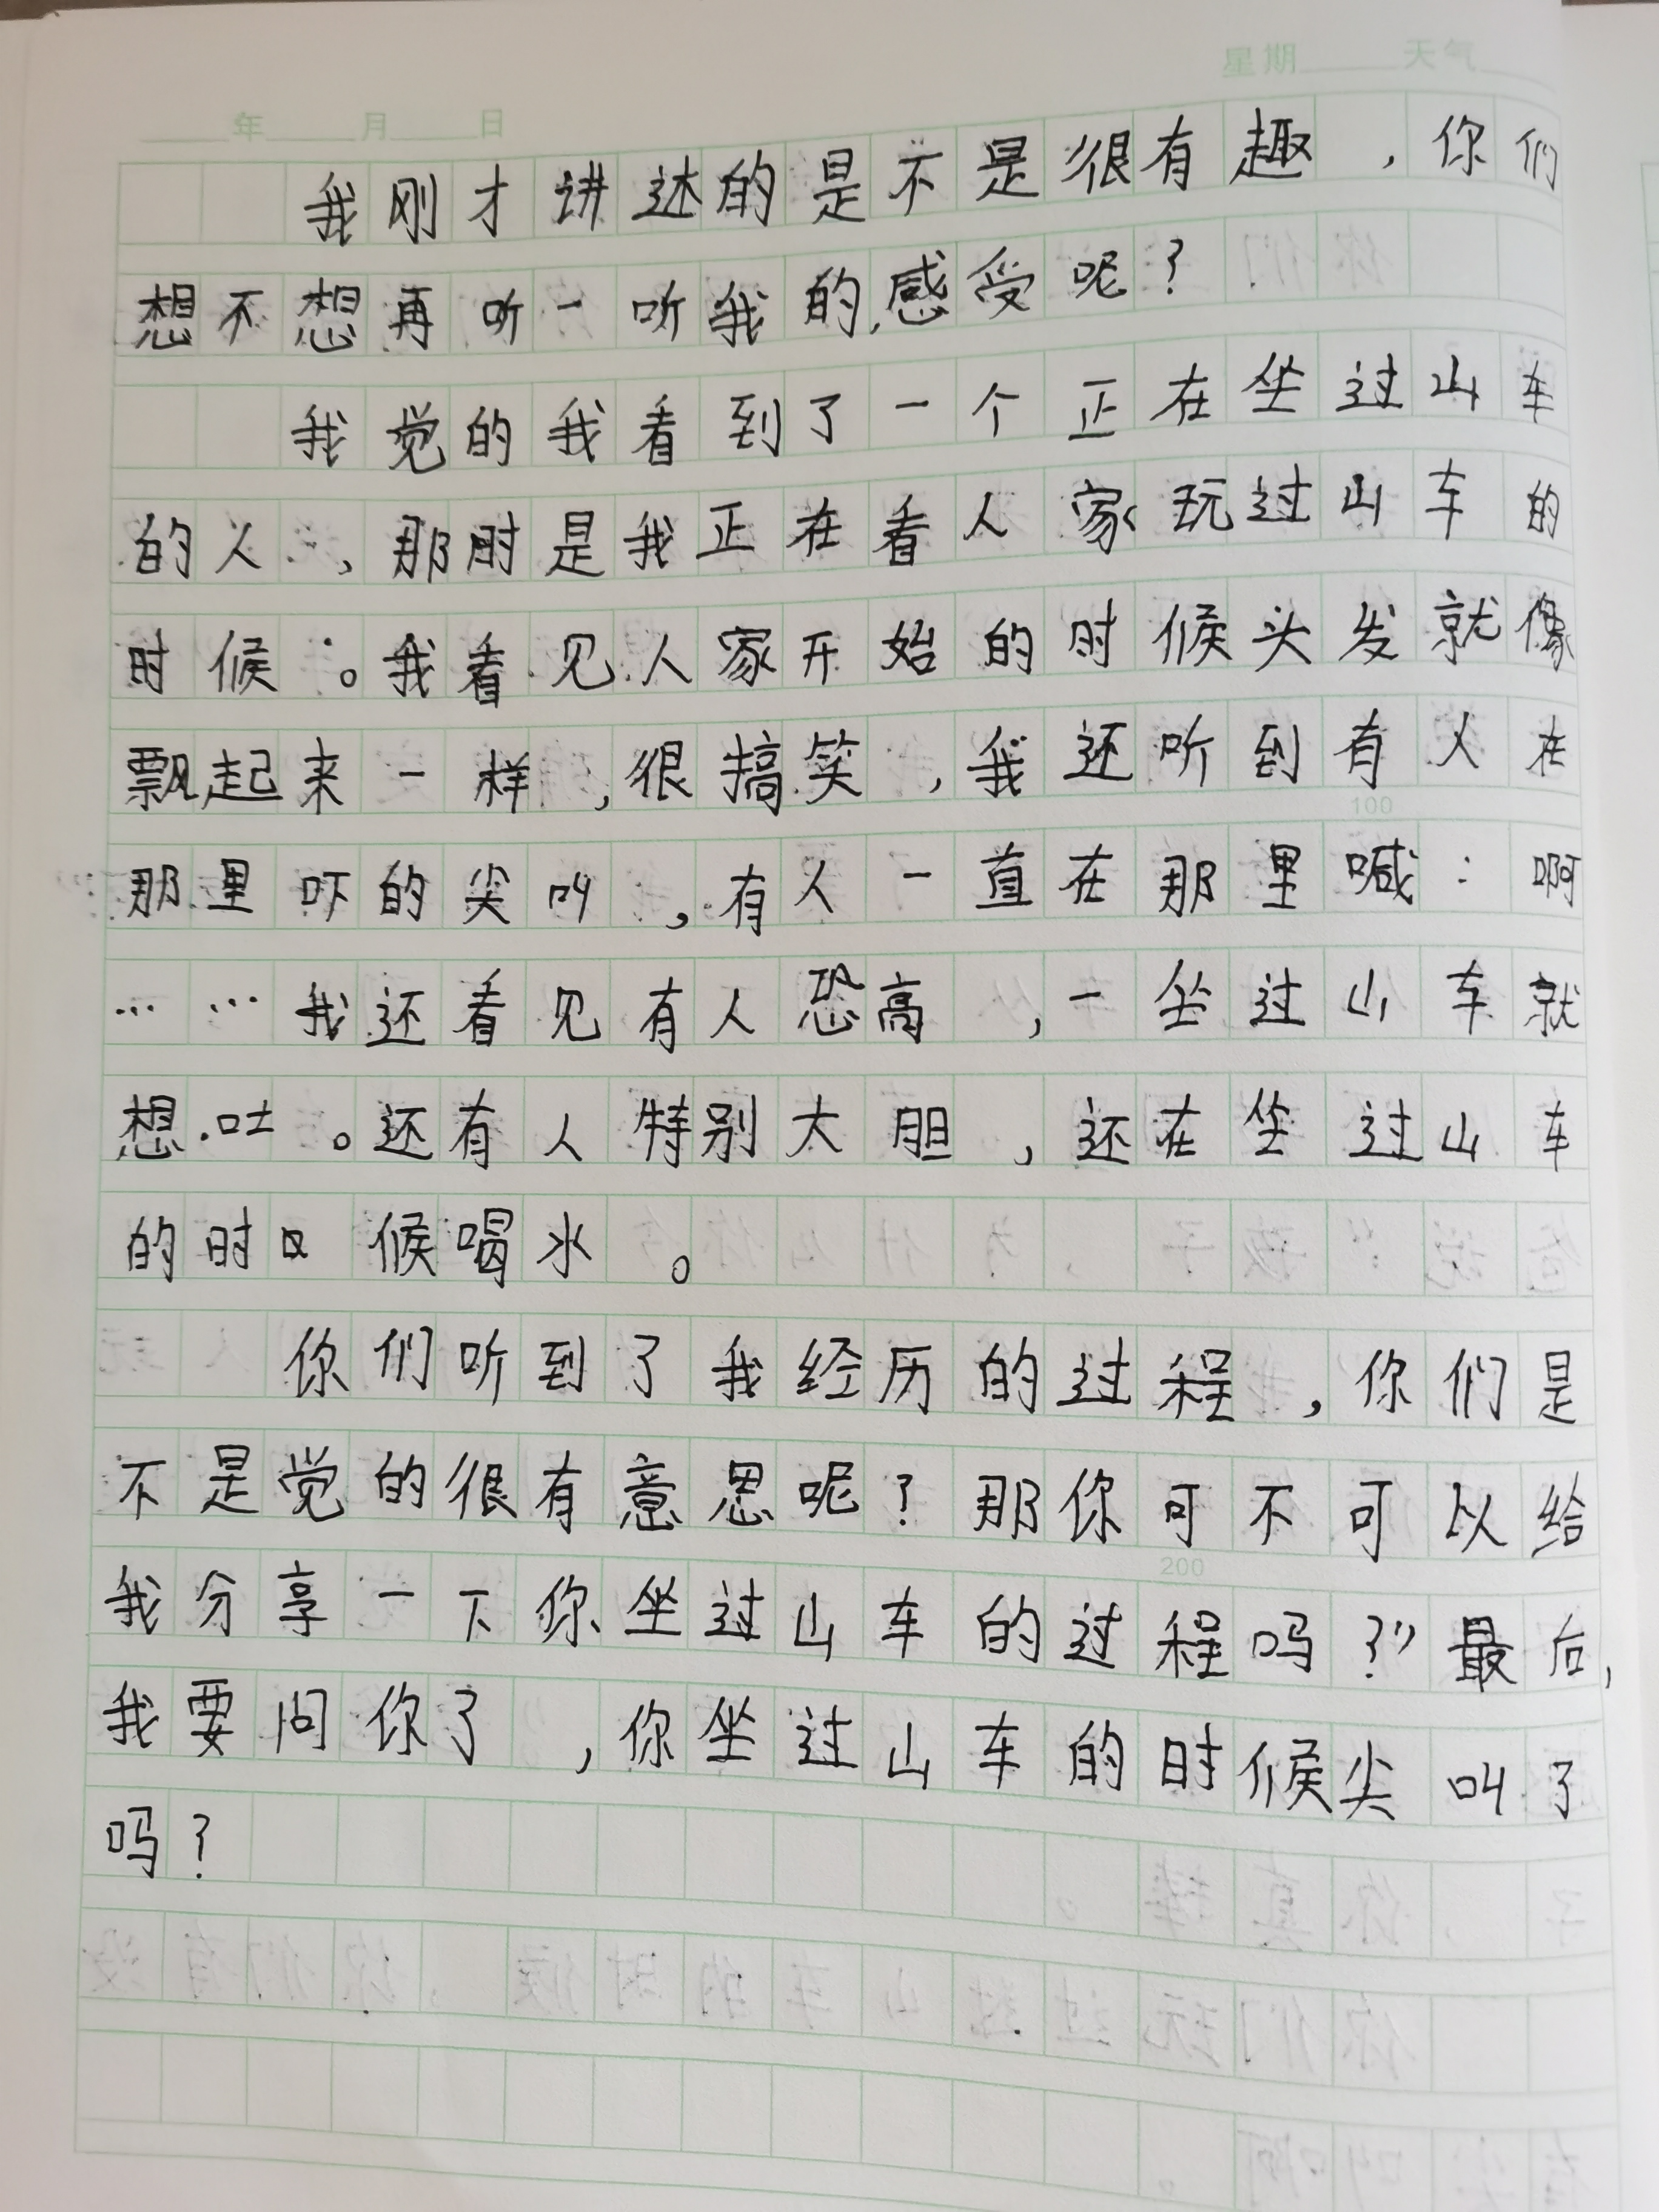 星期 天气
年 月 日
我刚才讲述的是不是很有趣，你们
想不想再听一听我的感受呢？
我觉的我看到了一个正在坐过山车
的人，那时是我正在看人家玩过山车的
时候。我看见人家开始的时候头发就像
飘起来一样，很搞笑，我还听到有人在
100
那里吓的尖叫，有人一直在那里喊：啊
……我还看见有人恐高，一坐过山车就
想吐。还有人特别大胆，还在坐过山车
的时候喝水。
你们听到了我经历的过程，你们是
不是觉的很有意思呢？那你可不可以给
200
我分享一下你坐过山车的过程吗？”最后，
我要问你了，你坐过山车的时候尖叫了
吗？